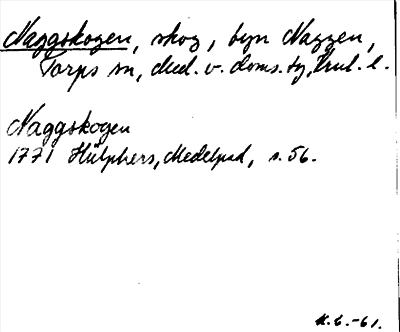 Naggskogen, skog, byn Naggen,
Torps sn, Med. v. doms. tg, l.
Naggskogen
1771 Hülphers, Medelpad, s. 56.
-61.